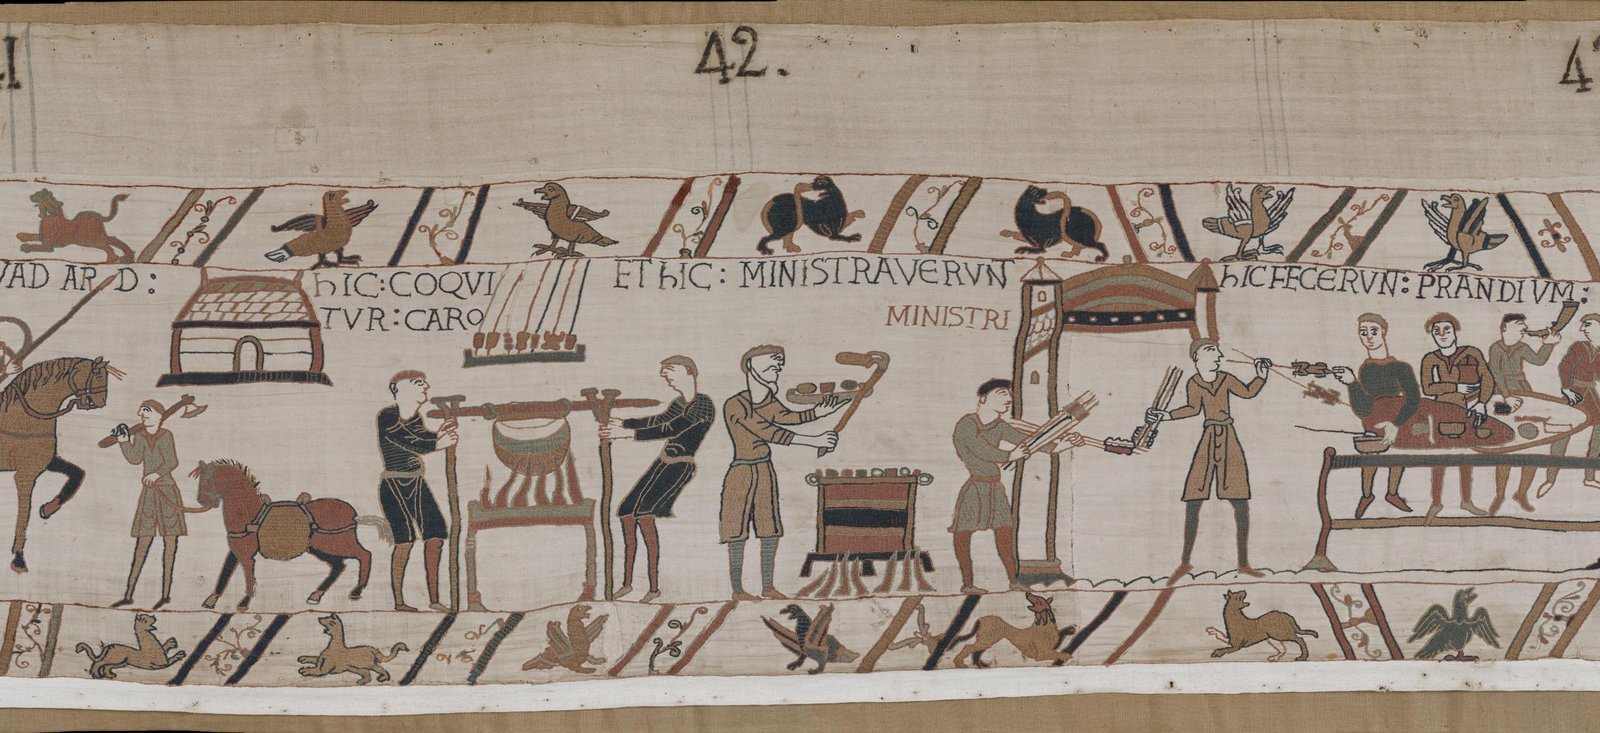 42.
VAD ARD:
hIC: COQVI
TVR: CARO
ET hIC: MINISTRAVERVNT
MINISTRI
hIC FECERVN: PRANDIVM: